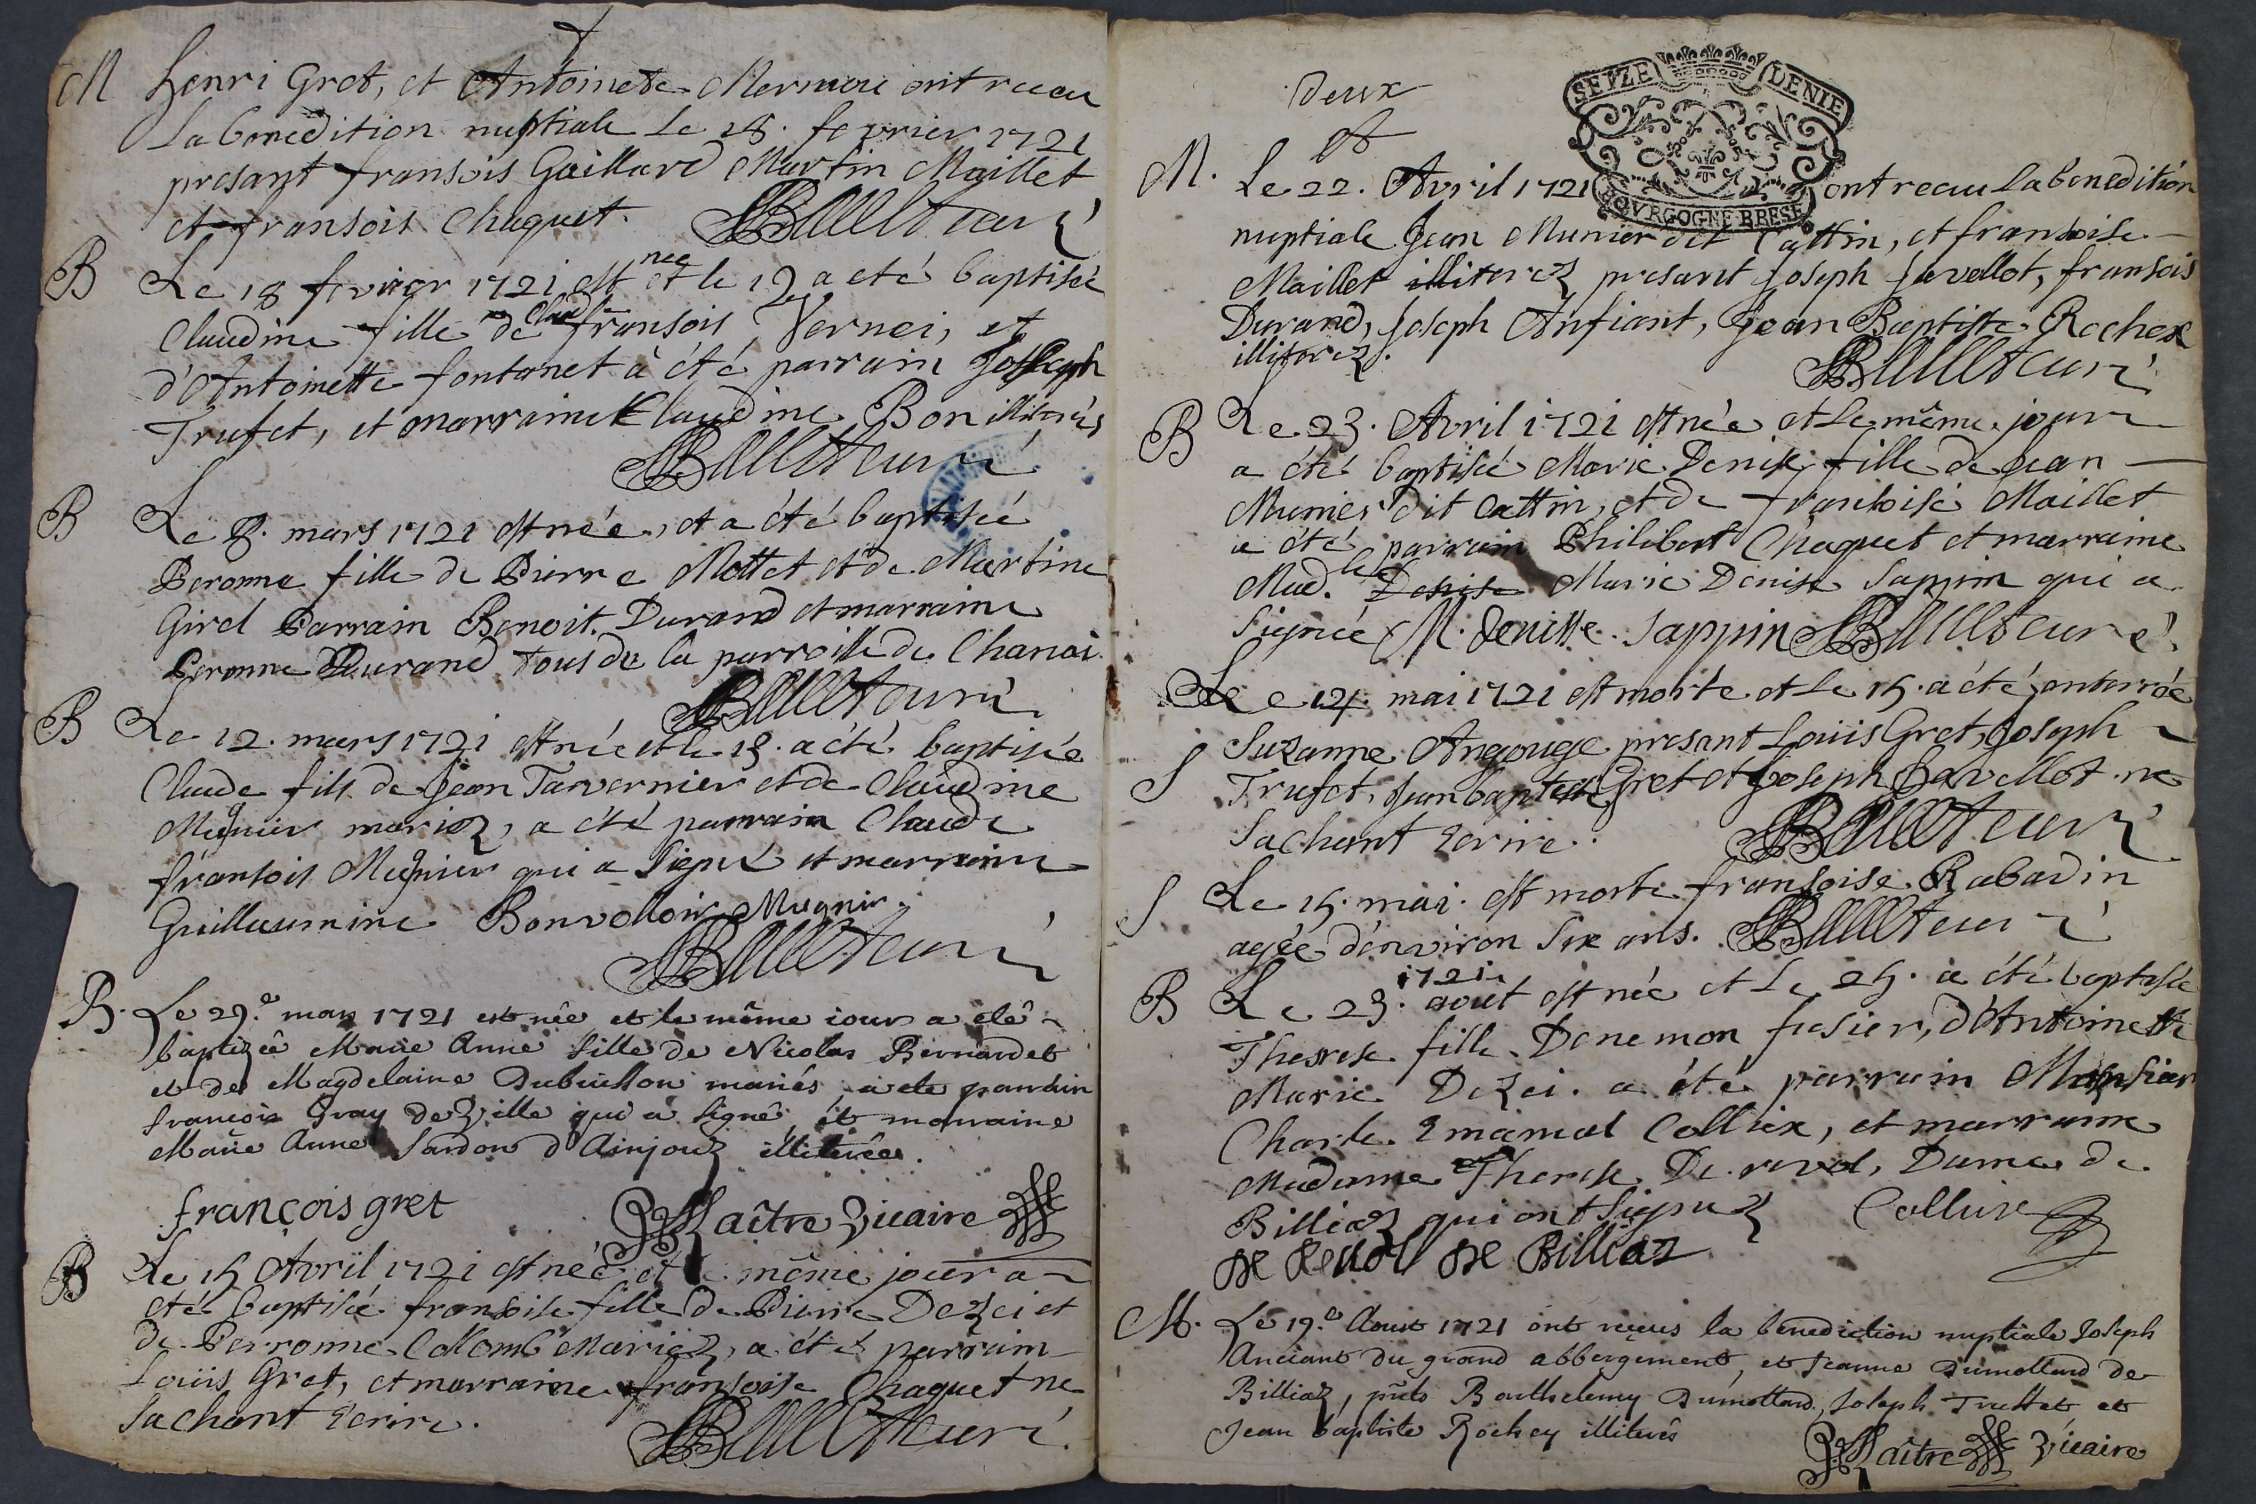 M Henri Gret, et Antoinete Mermoi ont recu
la benedition nuptiale le 18. fevrier 1721
presant fransois Gaillard Martin Maillet
et fransois Chaquet. Ballet curé
B Le 18 fevrier 1721 est née et le 19 a eté baptisée
Claudine fille de Claud fransois Vernei, et
d'Antoinette fontanet à été parrain Joseph
Trufet, et marraine Claudine Bon illiterés
Ballet curé
B Le 8. mars 1721 est née, et a été baptisée
Peronne fille de Pierre Mottet et de Martine
Girel Parrain Benoit Durand et marraine
Peronne Durand tous de la parroisse de Chanai.
Ballet curé
B Le 12. mars 1721 est né et le 13. a été baptisée
Claude fils de Jean Tavernier et de Claudine
Mugnier mariez, a été parrain Claude
fransois Mugnier qui a signé et marraine
Guillaumine Bonvolloir Mugnier.
Ballet curé
B. Le 29.e mars 1721 est née et le même iour a eté
baptizée Marie Anne fille de Nicolas Bernardet
et de Magdelaine Dubuisson mariés, a ete parrain
francois Gray de Zille qui a signé, et marraine
Marie Anne Sardon d'Ainjoux illiterée.
françois gret Maître Vicaire
B Le 15 Avril 1721 est née et le même jour a
eté baptisée fransoise fille de Pierre Dezei et
de Perronne Collomb Mariez, a été parrain
Loüis Gret, et marraine fransoise Chaquet ne
sachant ecrire.
Ballet curé.
SEIZE DENIE
BOVRGOGNE BRESE
deux
M. Le 22. Avril 1721 ont recu la benedition
nuptiale Jean Munier dit Cattin, et fransoise
Maillet illiterez presant Joseph Javellot, fransois
Durand, Joseph Anfiant, Jean Baptiste Rochex
illiterez.
Ballet curé
B Le 23. Avril 1721 est née et le même jour
a été baptisée Marie Denise fille de Jean
Munier dit Cattin, et de fransoise Maillet
a été parrain Philibert Chaquet et marraine
Mad.lle Denise Marie Denise Sappin qui a
signée M. denisse. Sappin Ballet curé.
Le 14. mai 1721 est morte et le 15. a été enterrée
S Suzanne Angouge presant Loüis Gret, Joseph
Trufet, Jean baptiste Gret et Joseph Javellot ne
sachant ecrire. Ballet curé
S Le 15. mai. est morte fransoise Rabadin
agée d'environ six ans. Ballet curé
B Le 23. aout 1721 est née et le 25. a été baptisée
Therese fille Denemon fusier, d'Antoinette
Marie Dezei. a été parrain Monsieur
Charle Emanuel Collier, et marraine
Madame Therese De revol, Dame de
Billiaz qui ont signez Colluix
De Revol de Billiaz
M. Le 19.e Aoust 1721 ont reçus la benediction nuptiale Joseph
Anciant du grand abbergement, et Jeanne Dumollard de
Billiaz, pnts Barthelemy Dumollard, Joseph Truffet et
Jean baptiste Rochey illiterés
Maître Vicaire